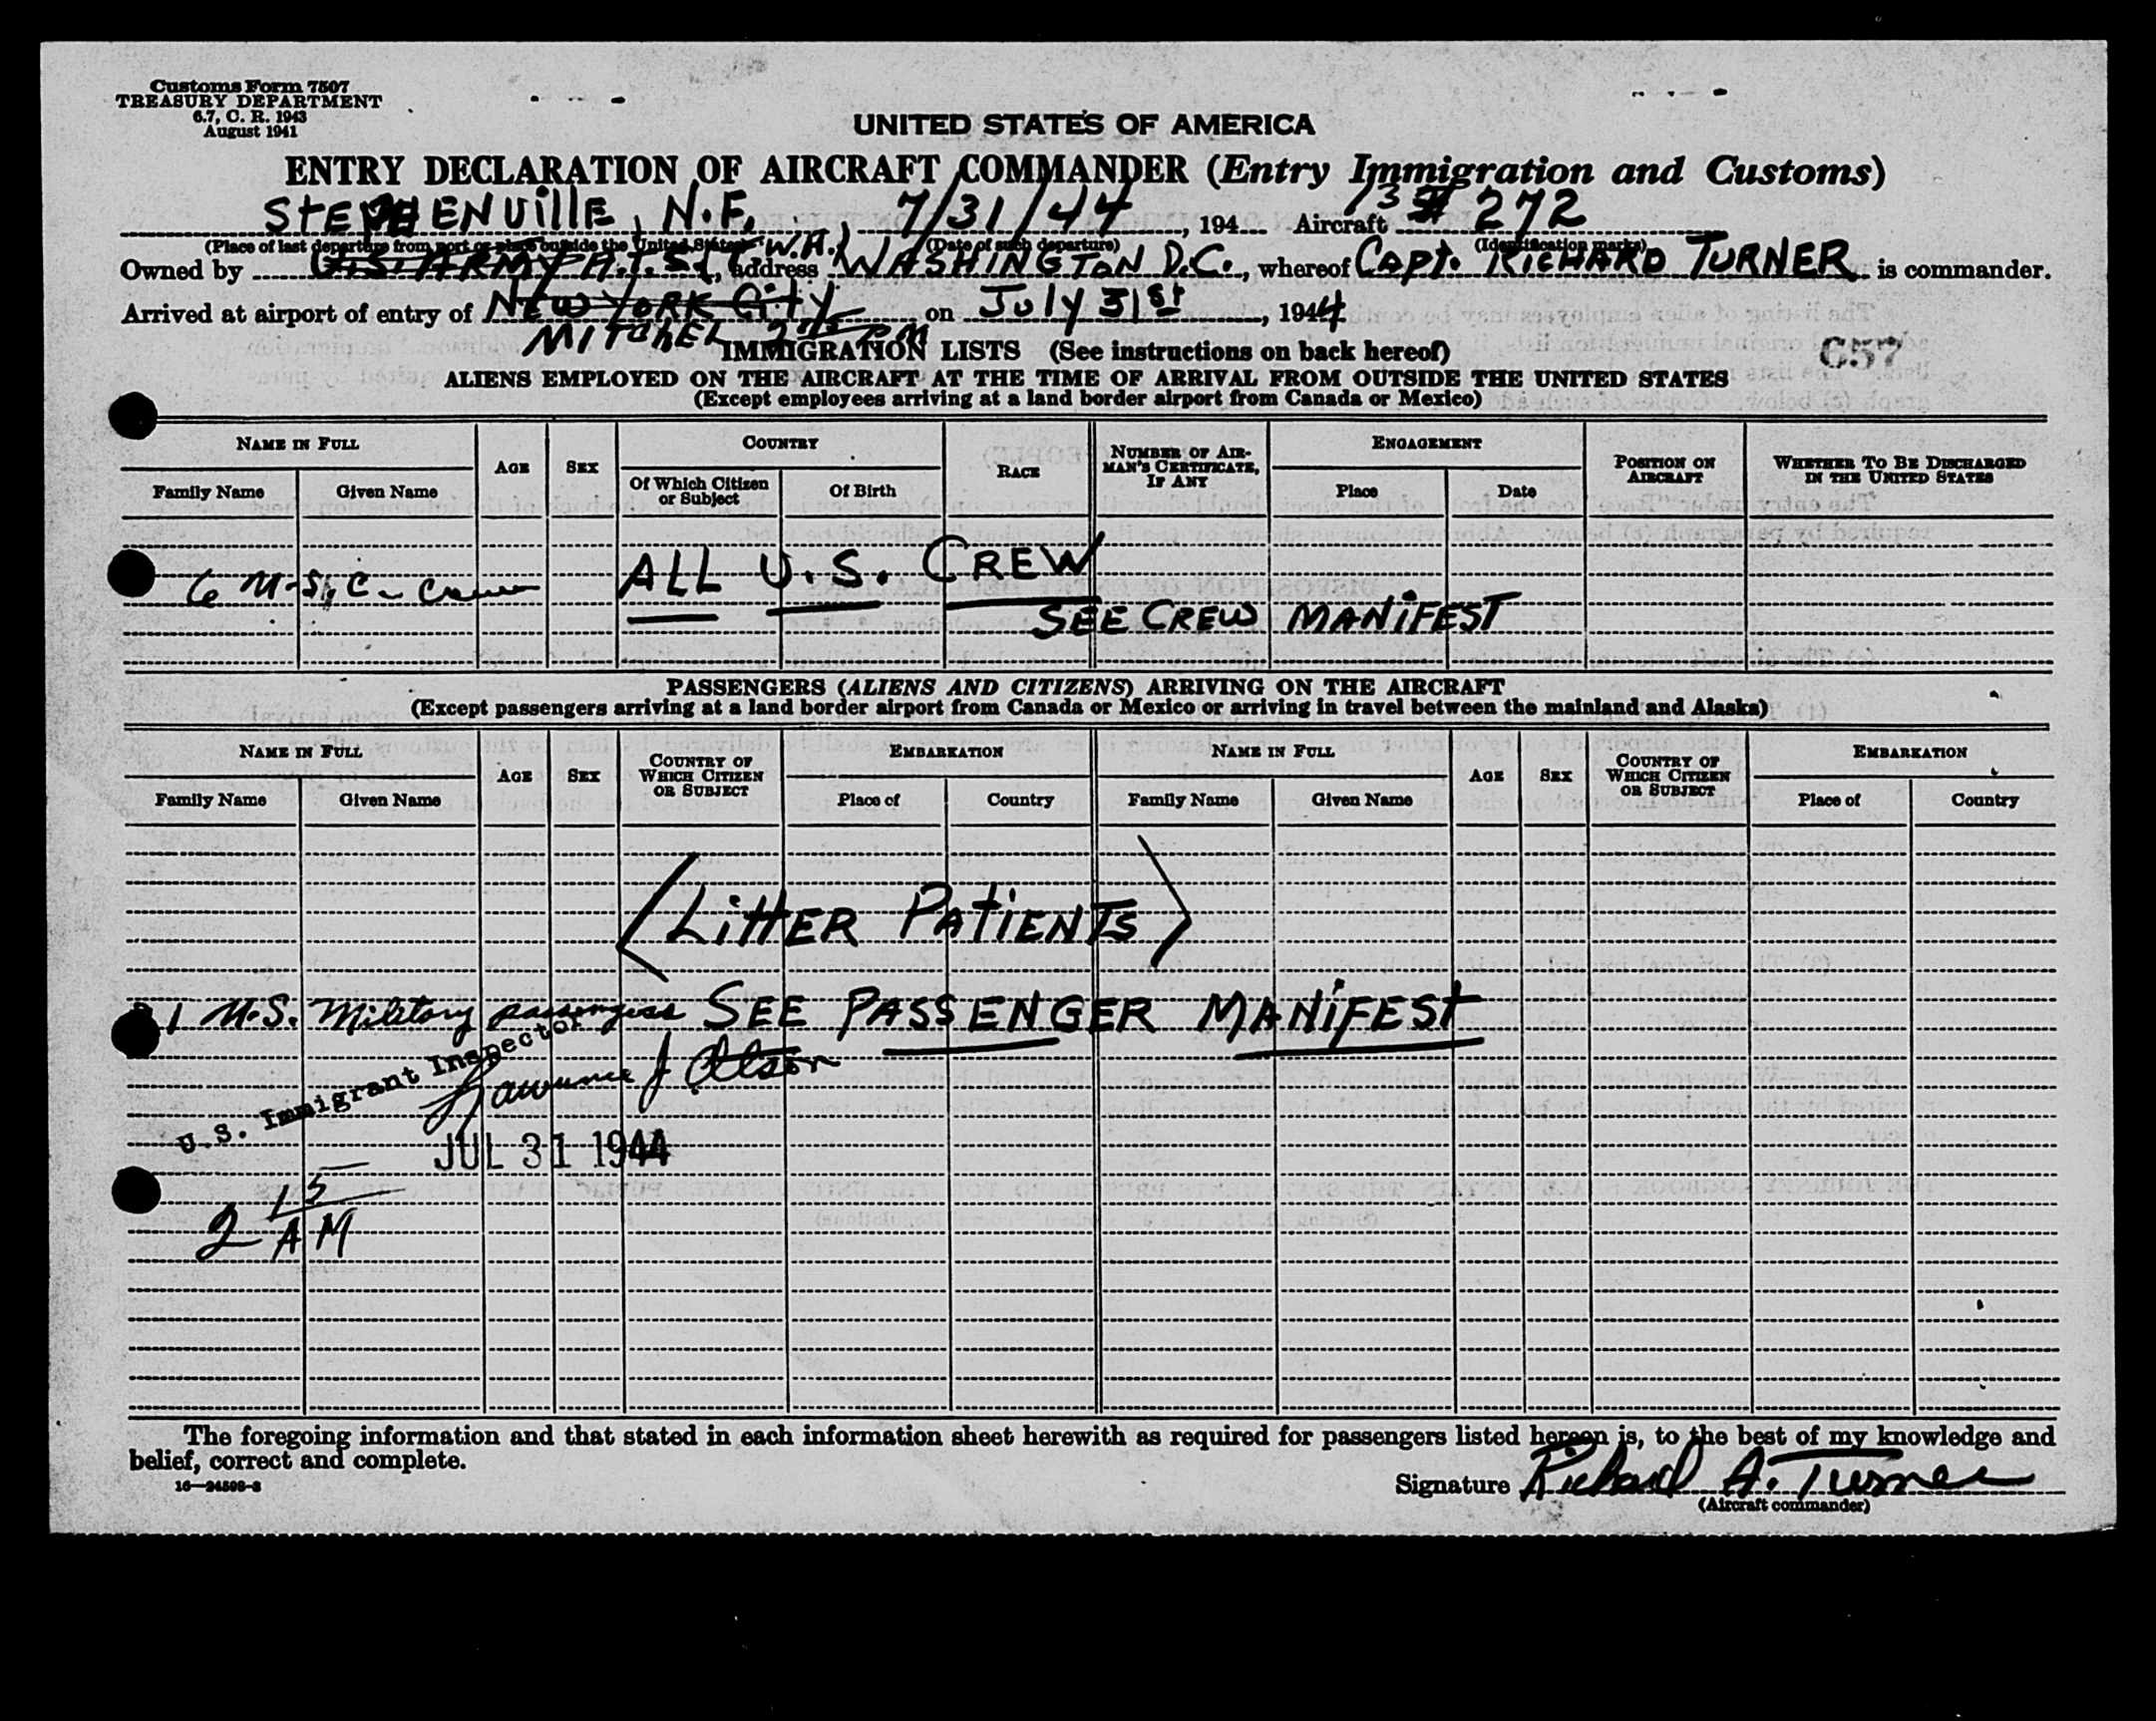 Customs Form 7507
TREASURY DEPARTMENT
6.7, C. R. 1943
August 1941
UNITED STATES OF AMERICA
ENTRY DECLARATION OF AIRCRAFT COMMANDER (Entry Immigration and Customs)
STEPHENVillE, N.F., 7/31/44, 194 Aircraft 272
(Place of last departure from port or place outside the United States) (Date of such departure) (Identification marks)
Owned by U.S. ARMY A.T.S. (T.W.A.), address WASHINGTON D.C., whereof CAPt. RICHARD TURNER is commander.
Arrived at airport of entry of NEW YORK City on July 31st, 1944
MITCHEL PM
IMMIGRATION LISTS (See instructions on back hereof)
657
ALIENS EMPLOYED ON THE AIRCRAFT AT THE TIME OF ARRIVAL FROM OUTSIDE THE UNITED STATES
(Except employees arriving at a land border airport from Canada or Mexico)
NAME IN FULL AGE SEX COUNTRY RACE NUMBER OF AIRMAN'S CERTIFICATE, IF ANY ENGAGEMENT POSITION ON AIRCRAFT WHETHER TO BE DISCHARGED IN THE UNITED STATES
Family Name Given Name Of Which Citizen or Subject Of Birth Place Date
6 U.S. C- Crew ALL U.S. CREW
SEE CREW MANiFEST
PASSENGERS (ALIENS AND CITIZENS) ARRIVING ON THE AIRCRAFT
(Except passengers arriving at a land border airport from Canada or Mexico or arriving in travel between the mainland and Alaska)
NAME IN FULL AGE SEX COUNTRY OF WHICH CITIZEN OR SUBJECT EMBARKATION NAME IN FULL AGE SEX COUNTRY OF WHICH CITIZEN OR SUBJECT EMBARKATION
Family Name Given Name Place of Country Family Name Given Name Place of Country
<LittER PAtiENTS>
1 U.S. Military passengers SEE PASSENGER MANiFESt
U.S. Immigrant Inspector
Lawrence J Olson
JUL 31 1944
2 15 AM
The foregoing information and that stated in each information sheet herewith as required for passengers listed hereon is, to the best of my knowledge and
belief, correct and complete.
16—24598-2
Signature Richard A. Turner
(Aircraft commander)